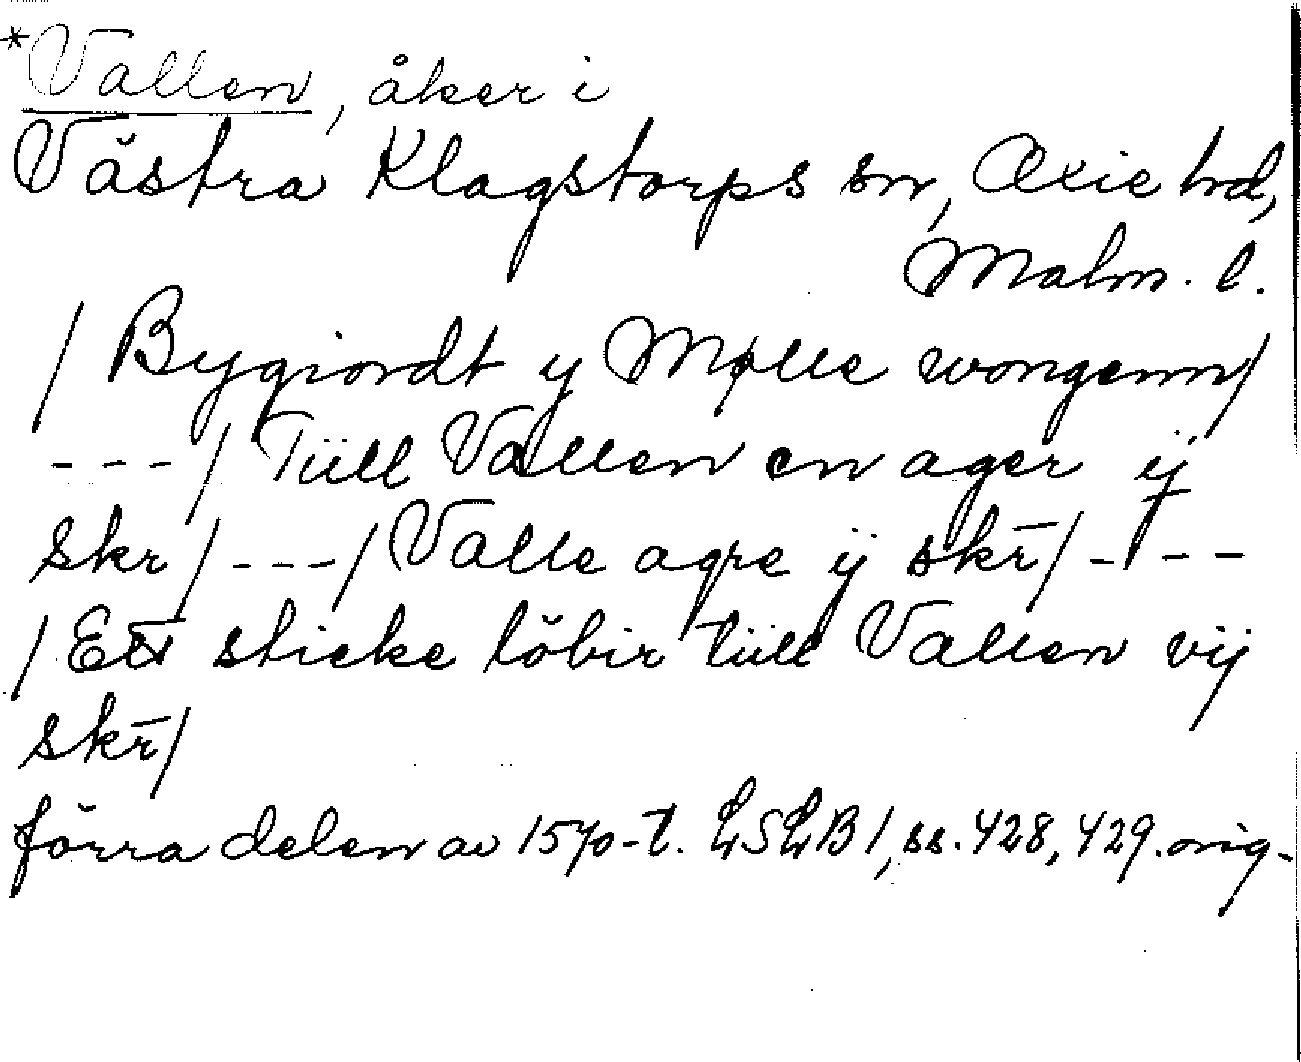 *Vallen, åker i
Västra Klagstorps sn, Oxie hd,
Malm. l.
/ Bygiordt y Mølle wongenn/
---/ Tiill Vallen en ager ij
skr/ ---/ Valle agre ij skr̄/ ----
/ Ett sticke löbir tiill Vallen vij
skr̄/
förra delen av 1570-t. LSLB 1, ss. 428, 429. orig.